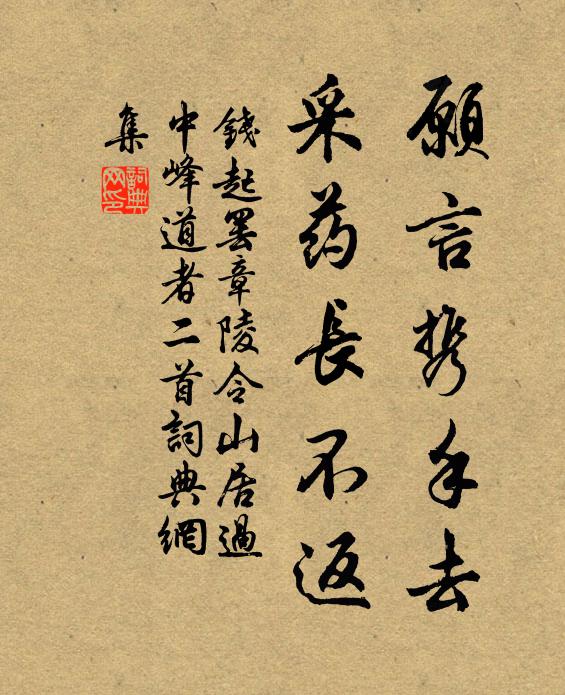 願言攜手去
采药長不返
錢起罢章陵令山居過
中峰道者二首詞典網
集
詞典
网印